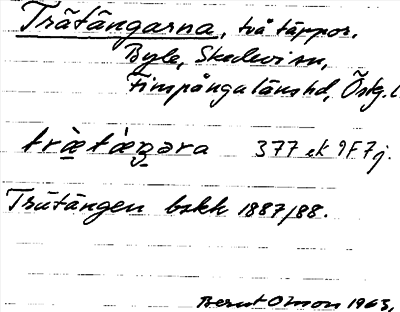 Trätängarna, två täppor.
Byle, Skedevi sn,
Finspånga läns hd, Östg. l
trὰ̀tὰŋəra 377 ek 9F7j.
Trätängen bskh 1887/88.
Bernt Olsson 1963.